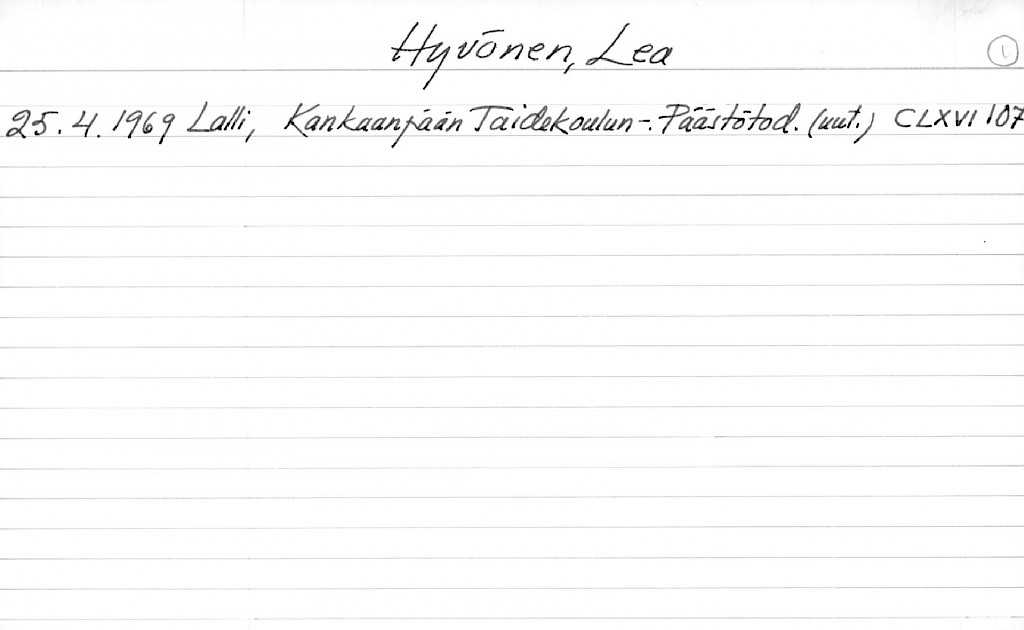 Hyvönen, Lea
1
25.4.1969 Lalli, Kankaanpään Taidekoulun-. Päästötod. (uut.) CLXVI 107